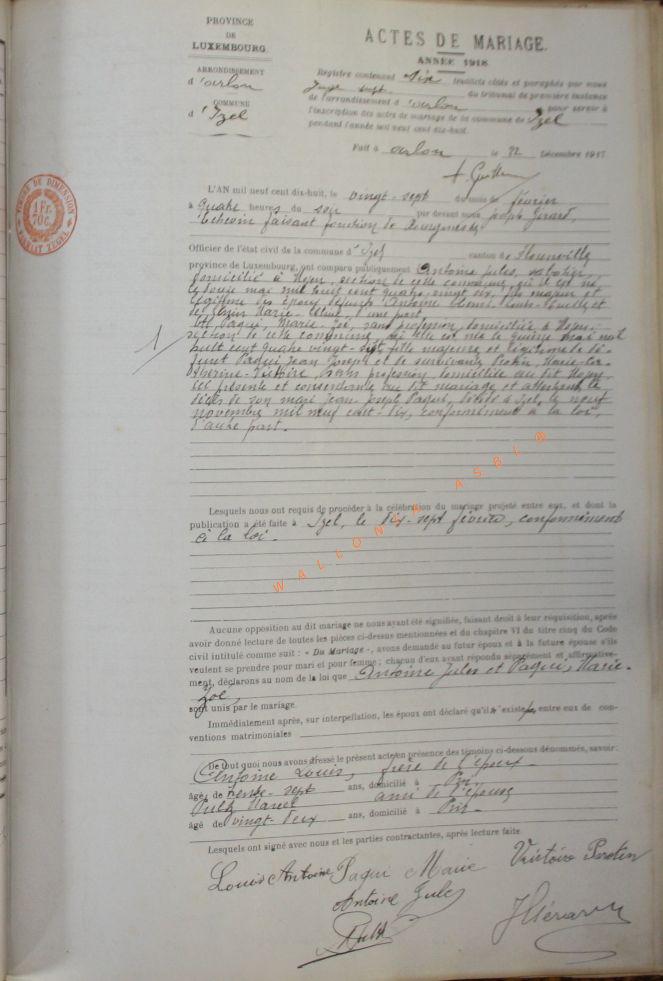 PROVINCE
DE
LUXEMBOURG.
ARRONDISSEMENT
d'arlon
COMMUNE
d'Izel
ACTES DE MARIAGE.
ANNÉE 1918.
Registre contenant six feuillets côtés et paraphés par nous
Juge du tribunal de première instance
de l'arrondissement d'arlon pour servir à
l'inscription des actes de mariage de la commune de Izel
pendant l'année mil neuf cent dix-huit.
Fait à arlon le 22 Décembre 1917
TIMBRE DE DIMENSION
1 Fr.
70c.
1
L'AN mil neuf cent dix-huit, le vingt-sept du mois de février
à quatre heures du soir par devant nous Joseph Gérard,
Echevin faisant fonction de Bourgmestre
Officier de l'état civil de la commune d'Izel canton de Florenville
province de Luxembourg, ont comparu publiquement Antoine Jules, sabotier,
domicilié à section de cette commune, où il est né
le douze mai mil huit cent quatre-vingt six, fils majeur et
légitime des époux défunts Antoine
Marie d'une part
Et Paqui, Marie-Zoé, sans profession, domiciliée à
section de cette commune, où elle est née le quinze mil
huit cent quatre vingt-sept fille majeure et légitime de dé-
funt Paqui Jean Joseph et de survivante Marie-Ca-
therine-Victoire, sans profession, domiciliée au dit
ici présente et consentante au dit mariage et attestant le
décès de son mari Jean-Joseph Paqui, décédé à Izel, le neuf
novembre mil neuf cent-dix, conformément à la loi,
d'autre part.
Lesquels nous ont requis de procéder à la célébration du mariage projeté entre eux, et dont la
publication a été faite à Izel, le dix-sept février, conformément
à la loi.
Aucune opposition au dit mariage ne nous ayant été signifiée, faisant droit à leur réquisition, après
avoir donné lecture de toutes les pièces ci-dessus mentionnées et du chapitre VI du titre cinq du Code
civil intitulé comme suit : « Du Mariage », avons demandé au futur époux et à la future épouse s'ils
veulent se prendre pour mari et pour femme ; chacun d'eux ayant répondu séparément et affirmative-
ment, déclarons au nom de la loi que Antoine Jules et Paqui, Marie-
Zoé,
sont unis par le mariage.
Immédiatement après, sur interpellation, les époux ont déclaré qu'il n'existe pas entre eux de con-
ventions matrimoniales
De tout quoi nous avons dressé le présent acte en présence des témoins ci-dessous dénommés, savoir :
Antoine Louis, frère de l'époux
âgé de trente-sept ans, domicilié à Pin
Marcel ami de l'époux
âgé de vingt-deux ans, domicilié à Pin
Lesquels ont signé avec nous et les parties contractantes, après lecture faite
Louis Antoine Paqui Marie Victoire
Antoine Jules
WALLONIA ASBL ®